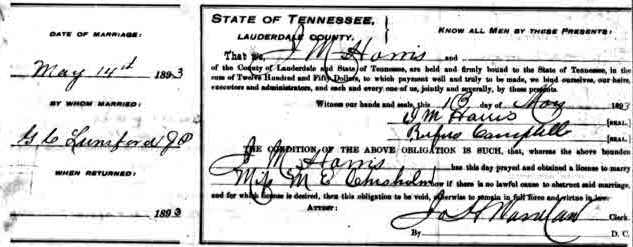 DATE OF MARRIAGE:
May 14th 1893
BY WHOM MARRIED:
G C Lunsford JP
WHEN RETURNED:
1893
STATE OF TENNESSEE,
LAUDERDALE COUNTY.
KNOW ALL MEN BY THESE PRESENTS:
That we, J M Harris and
of the County of Lauderdale and State of Tennessee, are held and firmly bound to the State of Tennessee, in the
sum of Twelve Hundred and Fifty Dollars, to which payment well and truly to be made, we bind ourselves, our heirs,
executors and administrators, and each and every one of us, jointly and severally, by these presents.
Witness our hands and seals, this 13 day of May 1893
J M Harris [SEAL]
Rufus Campbell [SEAL]
THE CONDITION OF THE ABOVE OBLIGATION IS SUCH, that, whereas the above bounden
J M Harris has this day prayed and obtained a license to marry
Miss M E Chisholm now if there is no lawful cause to obstruct said marriage,
and for which license is desired, then this obligation to be void, otherwise to remain in full force and virtue in law.
ATTEST: Clerk.
By D. C.